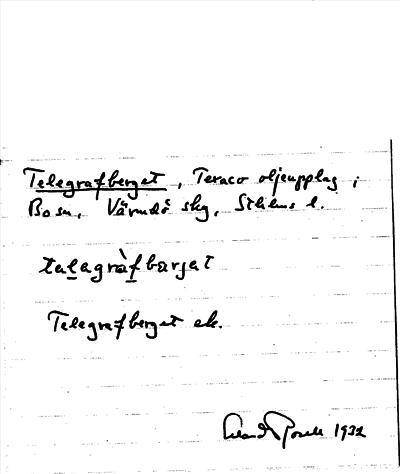 Telegrafberget, Texaco oljeupplag i
Bo sn, Värmdö skg, Sthlms l.
talagràfbarjat
Telegrafberget ek.
1932